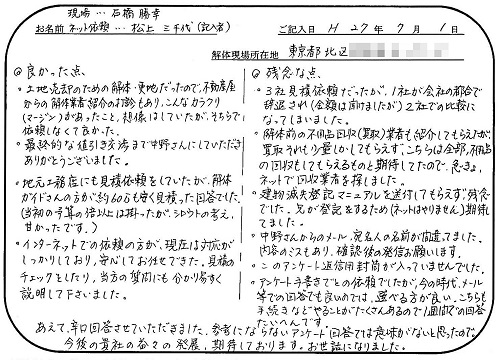 現場…石橋 勝幸
お名前 ネット依頼…松上 三千代(記入者)
ご記入日 H 27年 7月 1日
解体現場所在地 東京都北区
◎良かった点、
・土地売却のための解体・更地だったので、不動産屋
からの解体業者紹介の打診もあり、こんなカラクリ
(マージン)があったこと、想像はしていたが、そちらで
依頼しなくて良かった。
・最終的な値引き交渉まで中野さんにしていただき
ありがとうございました。
・地元工務店にも見積依頼をしていたが、解体
ガイドさんの方が約60万も安く見積った回答でした。
(当初の予算の倍以上は掛ったが、シロウトの考え、
甘かったです。)
・インターネットでの依頼の方が、現在は対応が
しっかりしており、安心してお任せできた。見積の
チェックをしたり、当方の質問にも分かり易すく
説明して下さいました。
◎残念な点、
・3社見積依頼だったが、1社が会社の都合で
辞退され(金額は聞けましたが)2社での比較に
なってしまいました。
・解体前の不用品回収(買取)業者も紹介してもらえたが、
買取それも少量しかしてもらえず、こちらは全部、不用品
の回収もしてもらえるものと期待してたので、急きょ、
ネットで回収業者を探しました。
・建物滅失登記マニュアルを送付してもらえず残念
でした。兄が登記をするため(ネットはやりません)期待し
てました。
・中野さんからのメール、宛名人の名前が間違ってました。
内容のミスもあり、確認後の発信お願いします。
・このアンケート返信用封筒が入っていませんでした。
・アンケート手書きでとの依頼でしたが、今の時代、メール
等での回答でも良いのでは、選べる方が良い。こちらも
手続きなどやることがたくさんあるので1週間での回答
たいへんです。
あえて、辛口回答させていただきました。参考にならないアンケート回答では意味がないと思ったので。
今後の貴社の益々の発展、期待しております。お世話になりました。